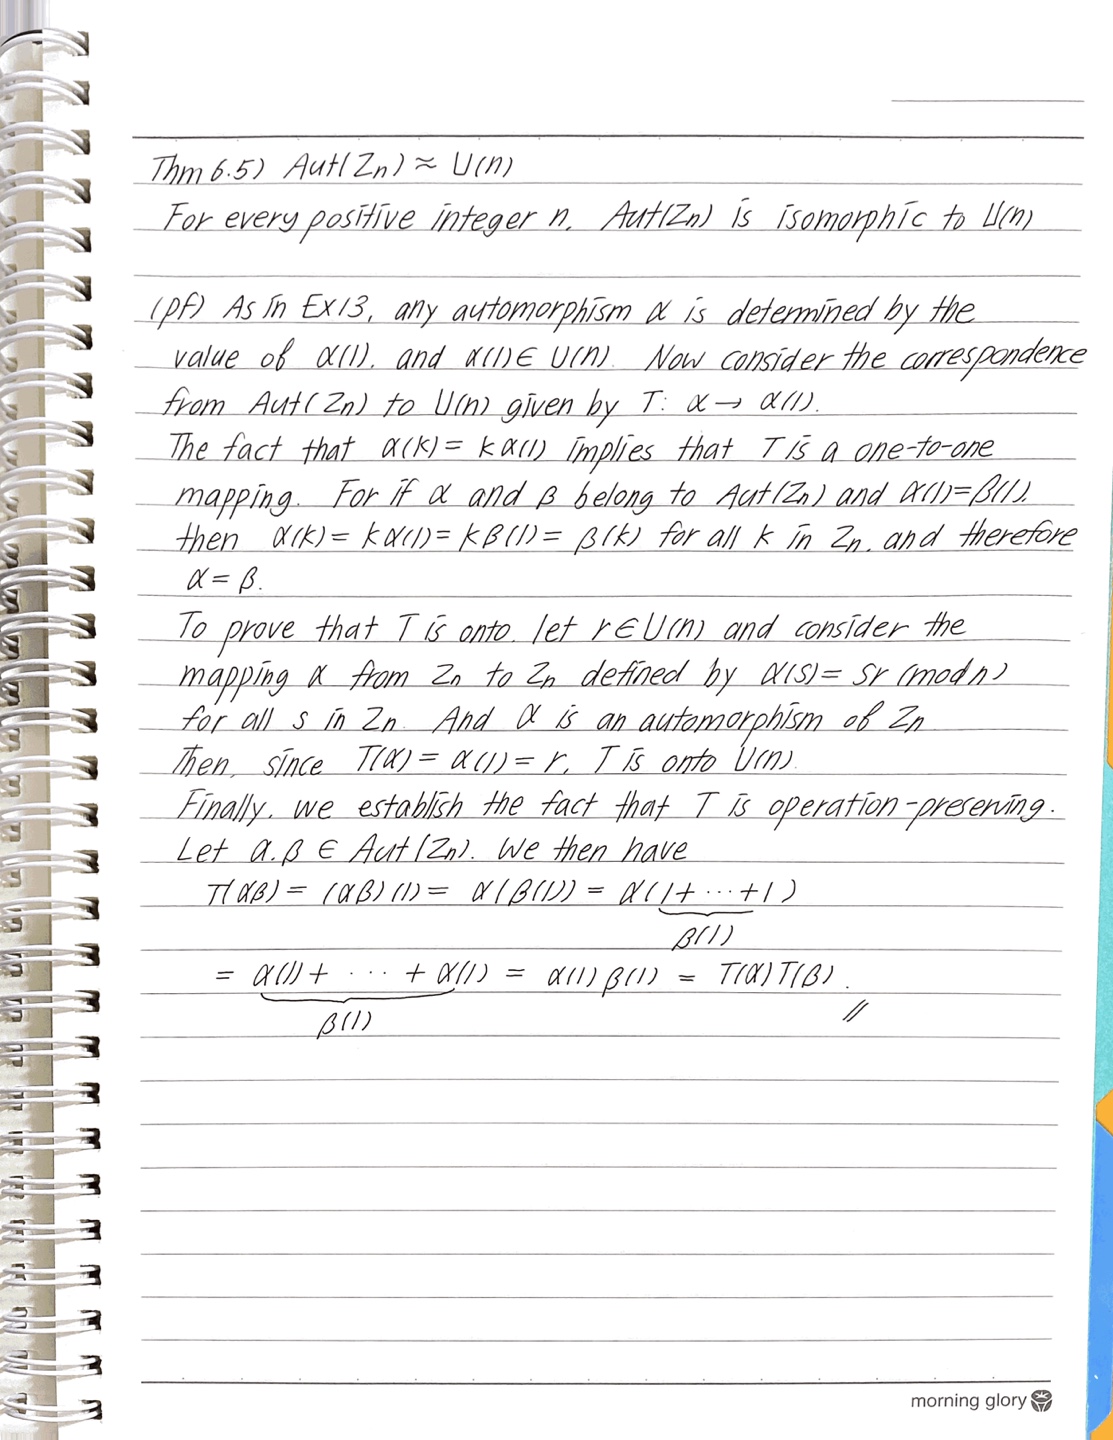 Thm 6.5) Aut(Zn) ≈ U(n)
For every positive integer n, Aut(Zn) is isomorphic to U(n)
(pf) As in Ex13, any automorphism α is determined by the
value of α(1), and α(1) ∈ U(n). Now consider the correspondence
from Aut(Zn) to U(n) given by T: α → α(1).
The fact that α(k) = kα(1) implies that T is a one-to-one
mapping. For if α and β belong to Aut(Zn) and α(1)=β(1),
then α(k) = kα(1) = kβ(1) = β(k) for all k in Zn, and therefore
α = β.
To prove that T is onto, let r ∈ U(n) and consider the
mapping α from Zn to Zn defined by α(s) = sr (mod n)
for all s in Zn. And α is an automorphism of Zn
Then, since T(α) = α(1) = r, T is onto U(n).
Finally, we establish the fact that T is operation-preserving.
Let α, β ∈ Aut(Zn). We then have
T(αβ) = (αβ)(1) = α(β(1)) = α(1+ ··· +1)
β(1)
= α(1) + ··· + α(1) = α(1) β(1) = T(α)T(β).
β(1) //
morning glory